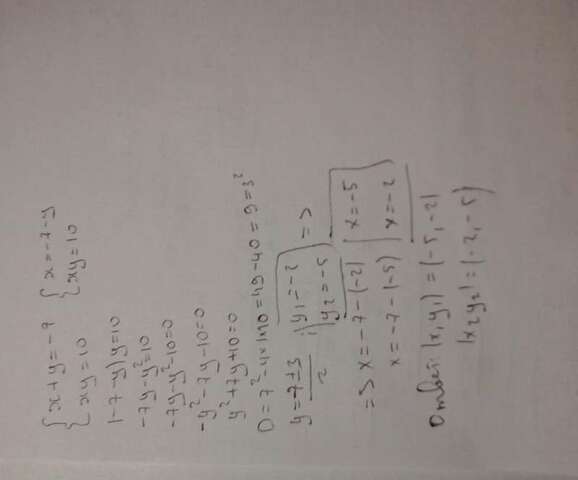 {x+y=-7 {x=-7-y
{xy=10 {xy=10
(-7-y)y=10
-7y-y²=10
-7y-y²-10=0
-y²-7y-10=0
y²+7y+10=0
D=7²-4×1×10=49-40=9=3²
y=-7±3/2 ; [y₁=-2 [y₂=-5 =>
=> x=-7-(-2) [x=-5
x=-7-(-5) [x=-2
Ответ: (x,y₁)=(-5,-2)
(x₂y₂)=(-2,-5)